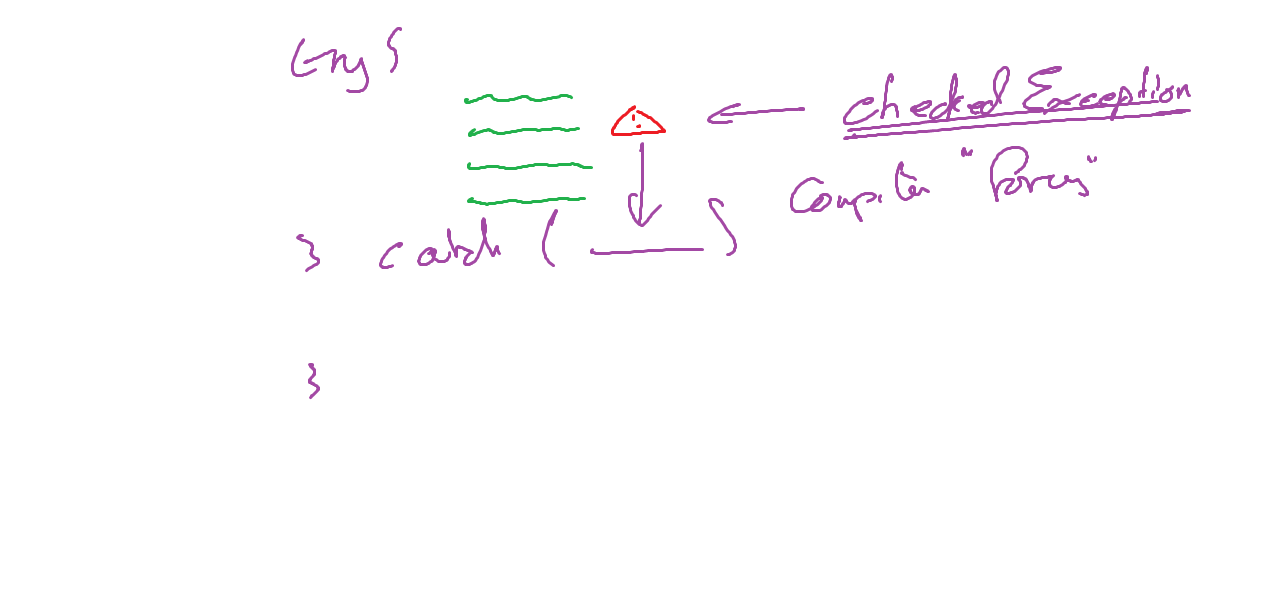 try {
checked Exception
Compiler "Forces"
} catch ( )
}